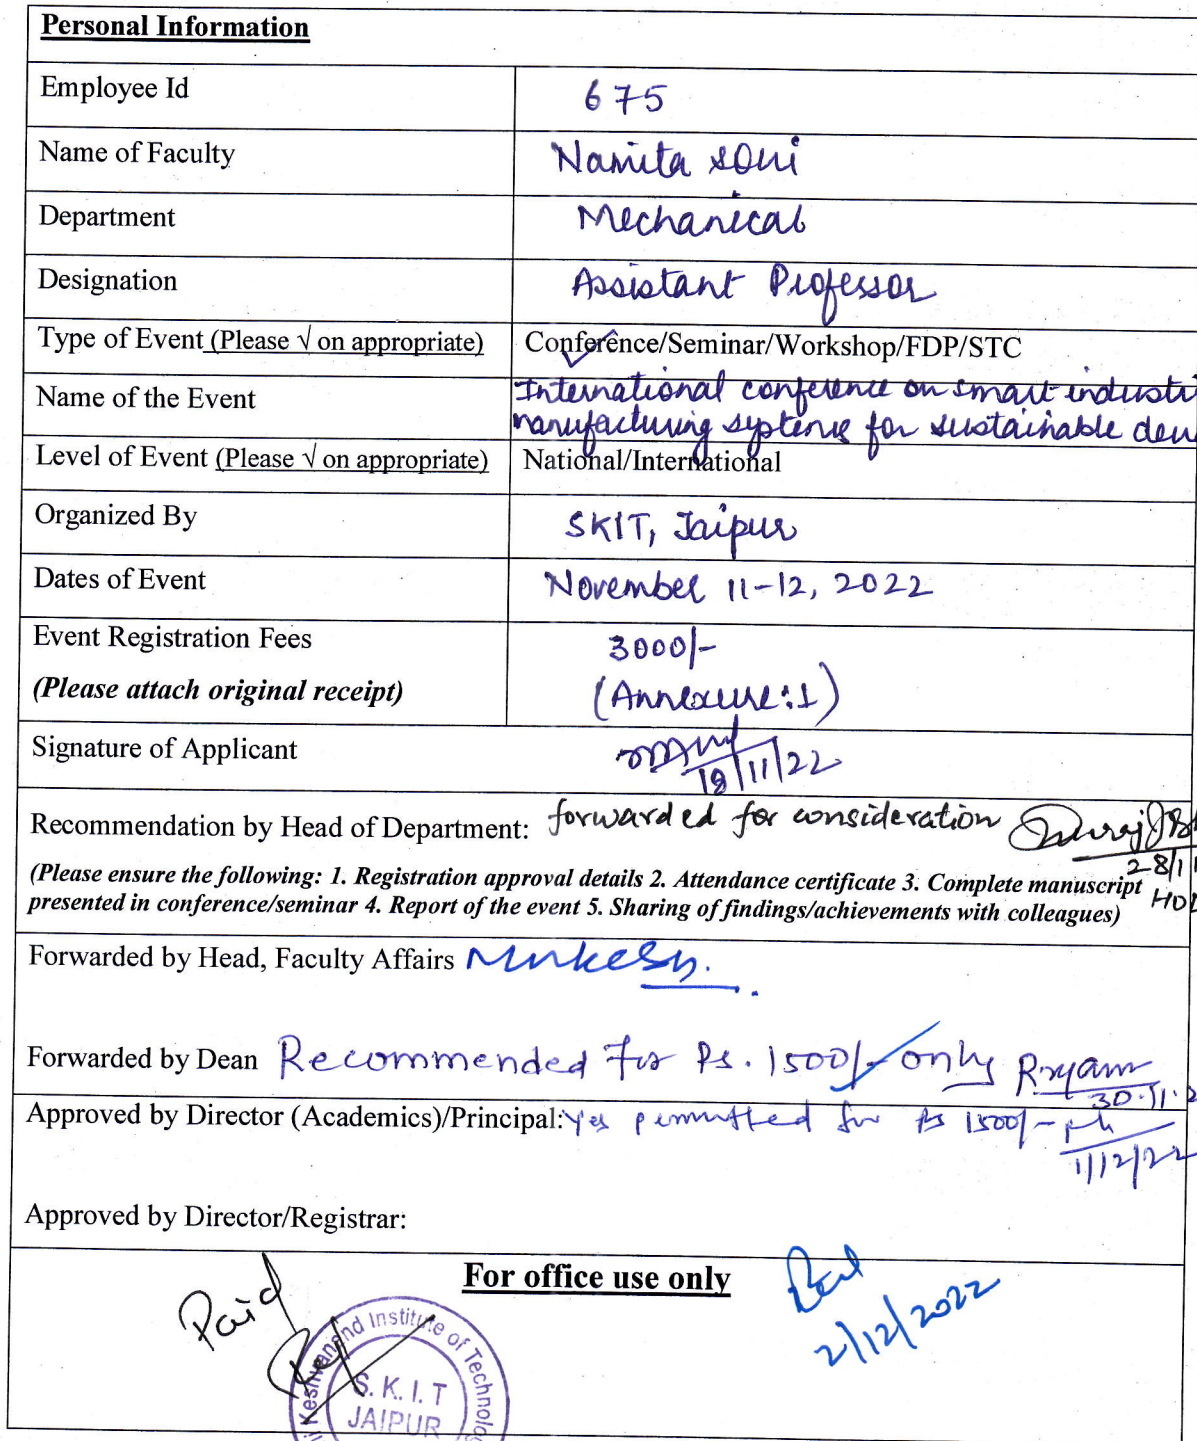 Personal Information
Employee Id 675
Name of Faculty Namita Soni
Department Mechanical
Designation Assistant Professor
Type of Event (Please √ on appropriate) Conference/Seminar/Workshop/FDP/STC
Name of the Event International conference on smart industri
manufacturing systems for sustainable deve
Level of Event (Please √ on appropriate) National/International
Organized By SKIT, Jaipur
Dates of Event November 11-12, 2022
Event Registration Fees 3000/-
(Please attach original receipt) (Annexure:1)
Signature of Applicant
18/11/22
Recommendation by Head of Department: forwarded for consideration
28/1
(Please ensure the following: 1. Registration approval details 2. Attendance certificate 3. Complete manuscript
presented in conference/seminar 4. Report of the event 5. Sharing of findings/achievements with colleagues) HOD
Forwarded by Head, Faculty Affairs Mukesh.
Forwarded by Dean Recommended for Rs. 1500/- only
30.11.2
Approved by Director (Academics)/Principal: Yes permitted for Rs 1500/-
1/12/22
Approved by Director/Registrar:
For office use only
Paid
2/12/2022
Keshvanand Institute of Technolo
S. K. I. T
JAIPUR